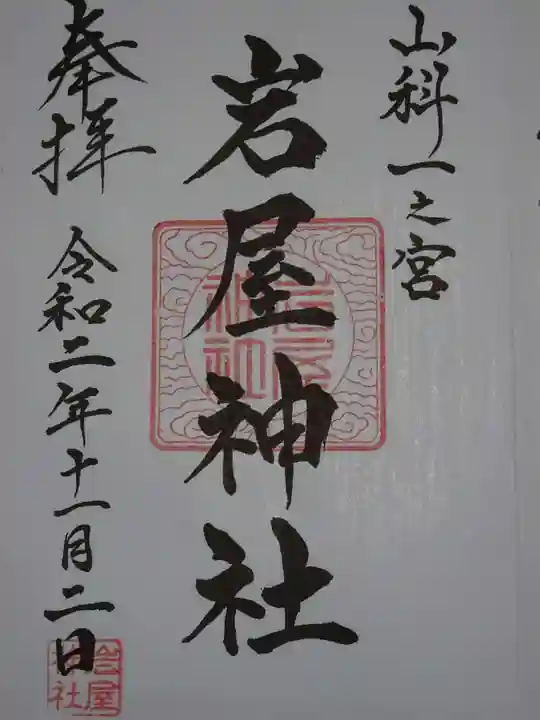 山科一之宮
岩屋神社
奉拝
令和二年十一月二日
岩屋神社
岩屋神社